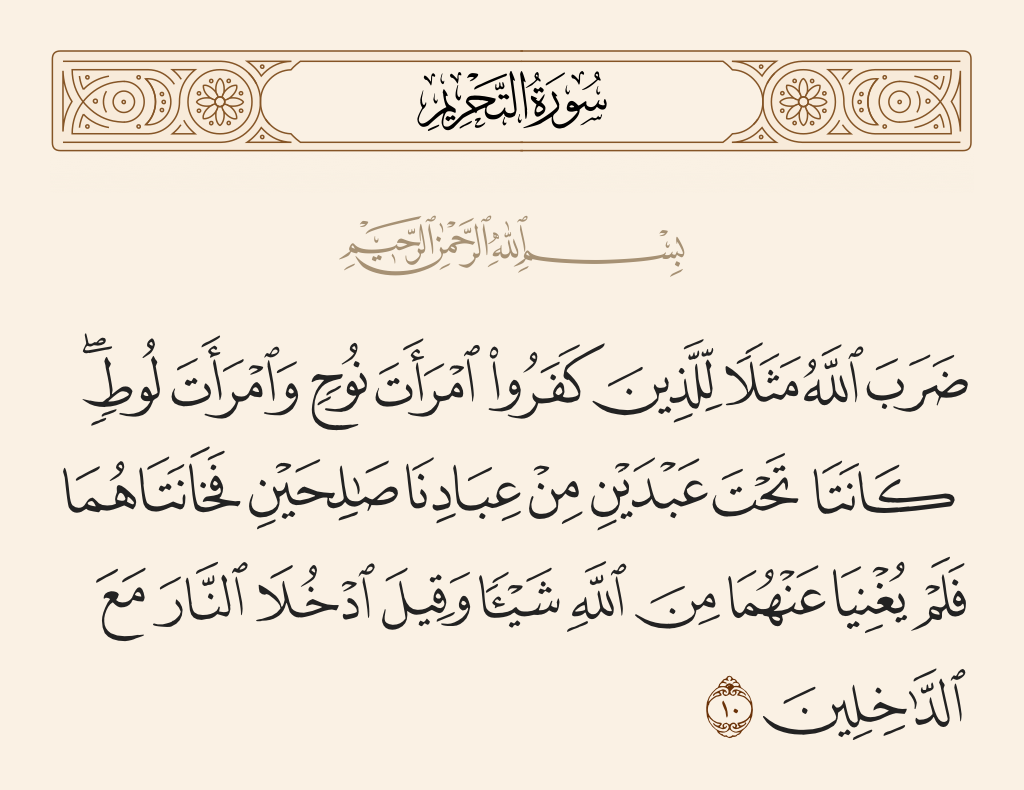 سُورَةُ التَّحْرِيمِ
بِسْمِ ٱللَّهِ ٱلرَّحْمَٰنِ ٱلرَّحِيمِ
ضَرَبَ ٱللَّهُ مَثَلًا لِّلَّذِينَ كَفَرُوا۟ ٱمْرَأَتَ نُوحٍ وَٱمْرَأَتَ لُوطٍ ۖ
كَانَتَا تَحْتَ عَبْدَيْنِ مِنْ عِبَادِنَا صَٰلِحَيْنِ فَخَانَتَاهُمَا
فَلَمْ يُغْنِيَا عَنْهُمَا مِنَ ٱللَّهِ شَيْـًٔا وَقِيلَ ٱدْخُلَا ٱلنَّارَ مَعَ
ٱلدَّٰخِلِينَ ١٠